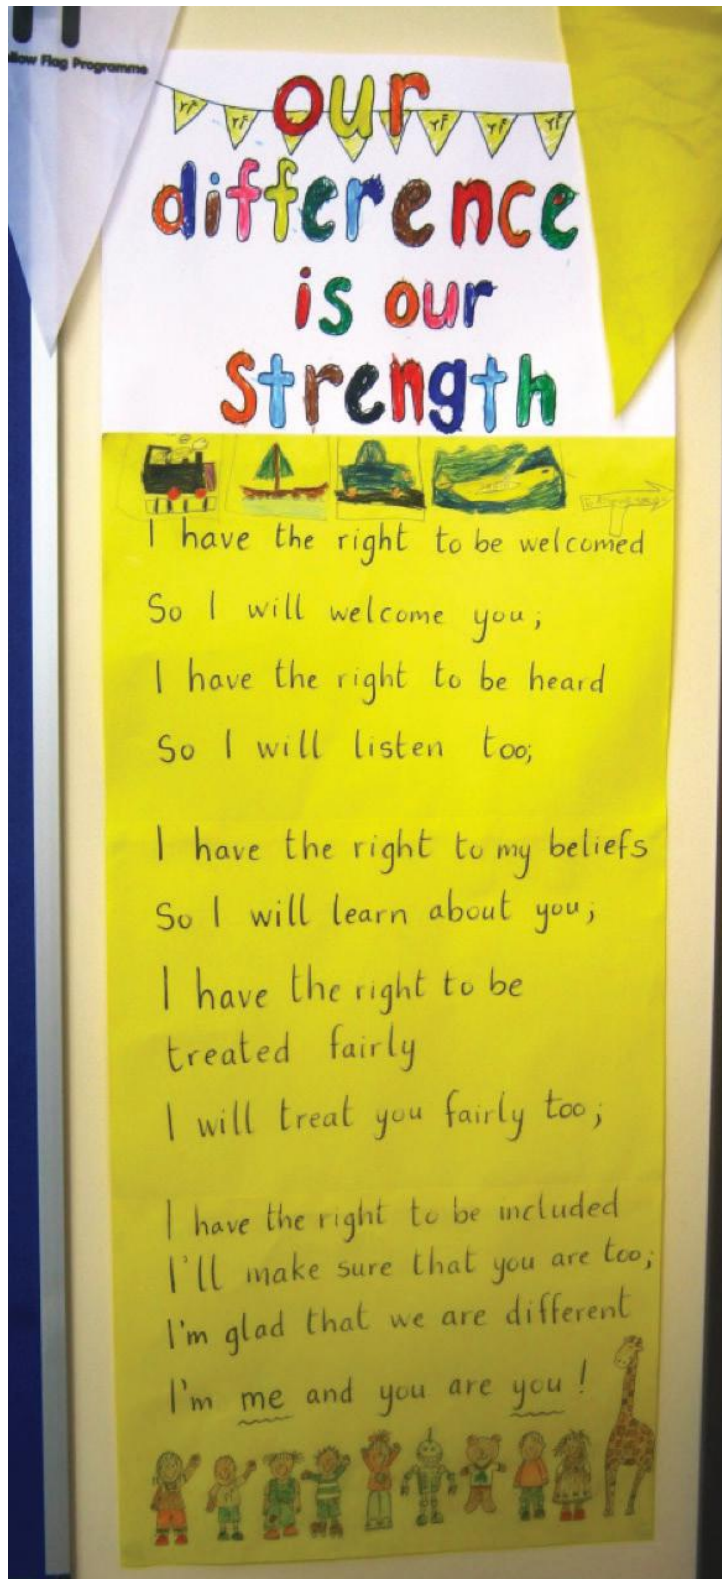 llow Flag Programme
YF YF YF YF YF
our
difference
is our
strength
I have the right to be welcomed
So I will welcome you;
I have the right to be heard
So I will listen too;
I have the right to my beliefs
So I will learn about you;
I have the right to be
treated fairly
I will treat you fairly too;
I have the right to be included
I'll make sure that you are too;
I'm glad that we are different
I'm me and you are you!